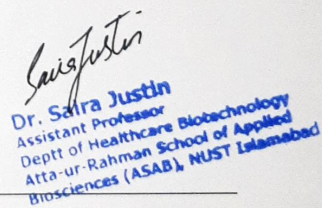 Saira Justin
Dr. Saira Justin
Assistant Professor
Deptt of Healthcare Biotechnology
Atta-ur-Rahman School of Applied
Biosciences (ASAB), NUST Islamabad